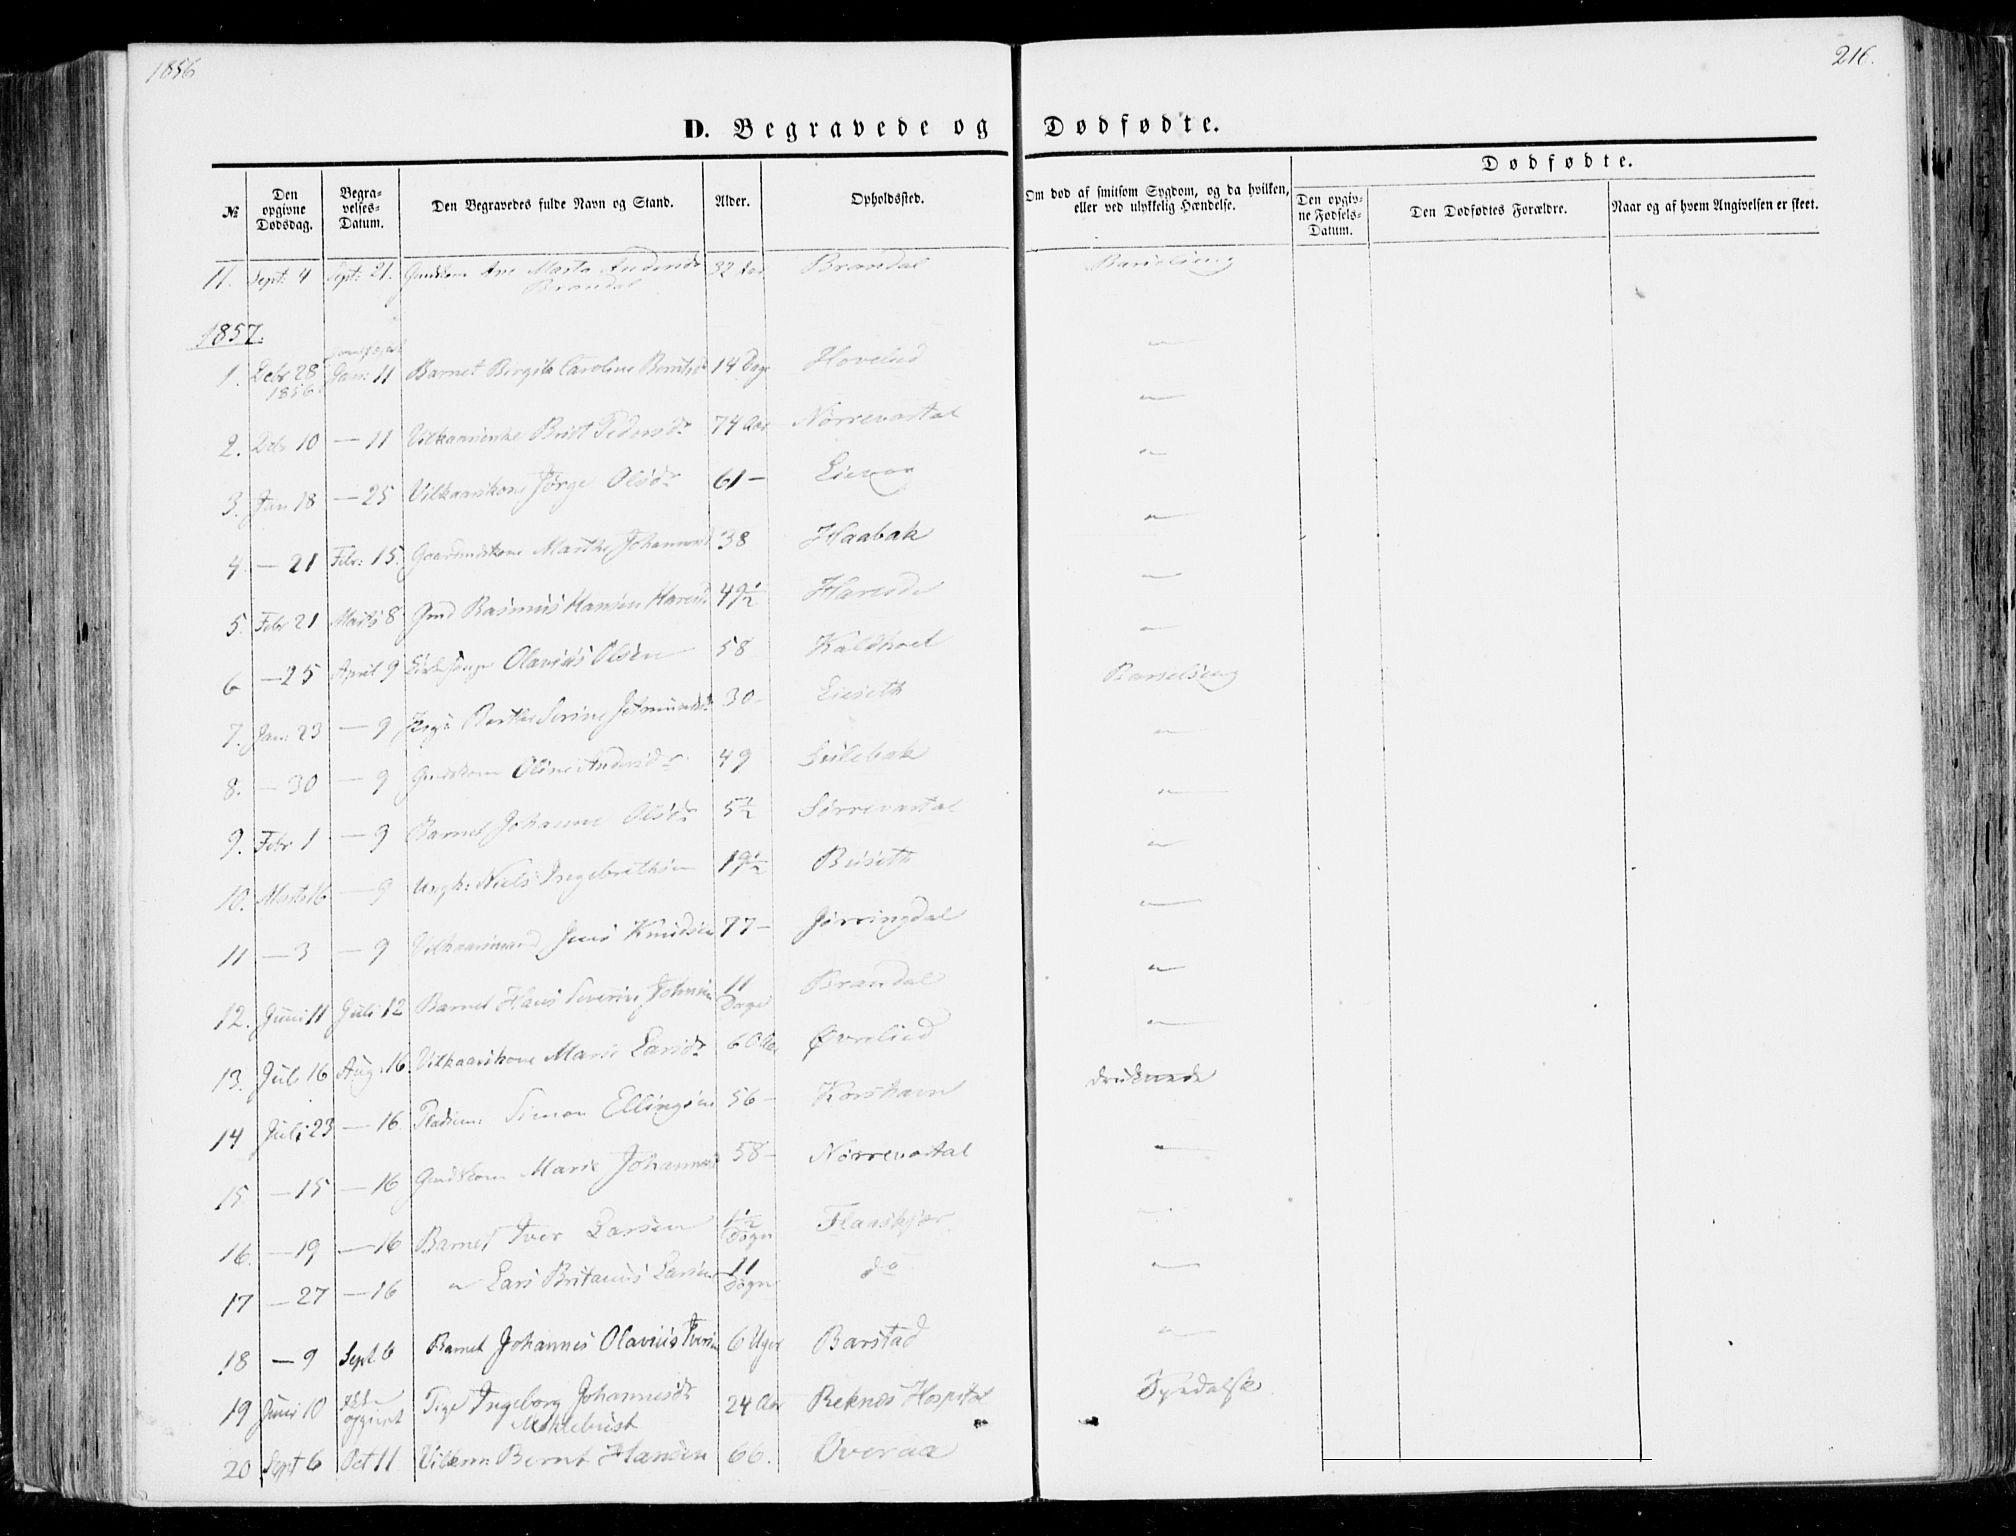 1856
216.
D. Begravede og Dødfødte.
Dødfødte.
№ Den opgivne Dødsdag. Begravelses-Datum. Den Begravedes fulde Navn og Stand. Alder. Opholdssted. Om død af smitsom Sygdom, og da hvilken, eller ved ulykkelig Hændelse. Den opgivne Fødsels-Datum. Den Dødfødtes Forældre. Naar og af hvem Angivelsen er skeet.
11. Sept: 4 Sept: 21. Ane Marta Andersdr 32 Aar Brandal Barselseng
Brandal
1857.
1. Debr 28 Jan: 11 Barnet Birgite Caroline Berntsd 14 Dage Hovelid —
1856.
2. Debr 10 — 11 Vilkaarsenke Brit Pedersdr 74 Aar Nørrevartal —
3. Jan 18 — 25 Vilkaarskone Jørge Olsdr 61 — —
4. — 21 Febr: 15. Gaardmdskone Marthe Johannesd 38 Haabak —
5. Febr 21 Marts 8 Gmd Rasmus Hansen Hareide 49½ Hareide —
6 — 25 April 9 Olavius Olsen 58 Kaldhoel —
7. Jan: 23 — 9 Pige Berthe Serine Jetmundsdr 30 — Liaseth Barselseng
8. — 30 — 9 Gmdskone Oline Andersdr 49 —
9. Febr 1 — 9 Barnet Johanne Olsdr 5½ Sørrevartal —
10. Marts 16 — 9 Ungk: Niels Ingebrethsen 19½ —
11 — 3 — 9 Vilkaarsmand Jens Knudsen 77 — Jørringdal —
12. Juni 11 Juli 12 Barnet Hans Severin Johnsen 11 Dage Brandal —
13. Juli 16 Aug: 16. Vilkaarskone Marie Larsdr 60 Aar Øvrelied —
14 Juli 23 — 16. Pladsm: Simon Ellingsen 56 — Korshavn druknede
15. — 15 — 16 Gmdskone Marie Johannesd 58 — Nørrevartal —
16. — 19 — 16 Barnet Iver Larsen 1½ Døgn Flaaskjær —
17 — 27 — 16 " Lars Britanus Larsen 11 Døgn do —
18 — 9 Sept 6 Barnet Johannes Olavius Iversen 6 Uger Barstad —
19 Juni 10 Ikke opgivet Pige Ingeborg Johannesdr 24 Aar Reknæs Hospital Spedalsk
Myklebust
20 Sept 6 Oct 11 Vilkm: Bernt Hansen 66. Overaa